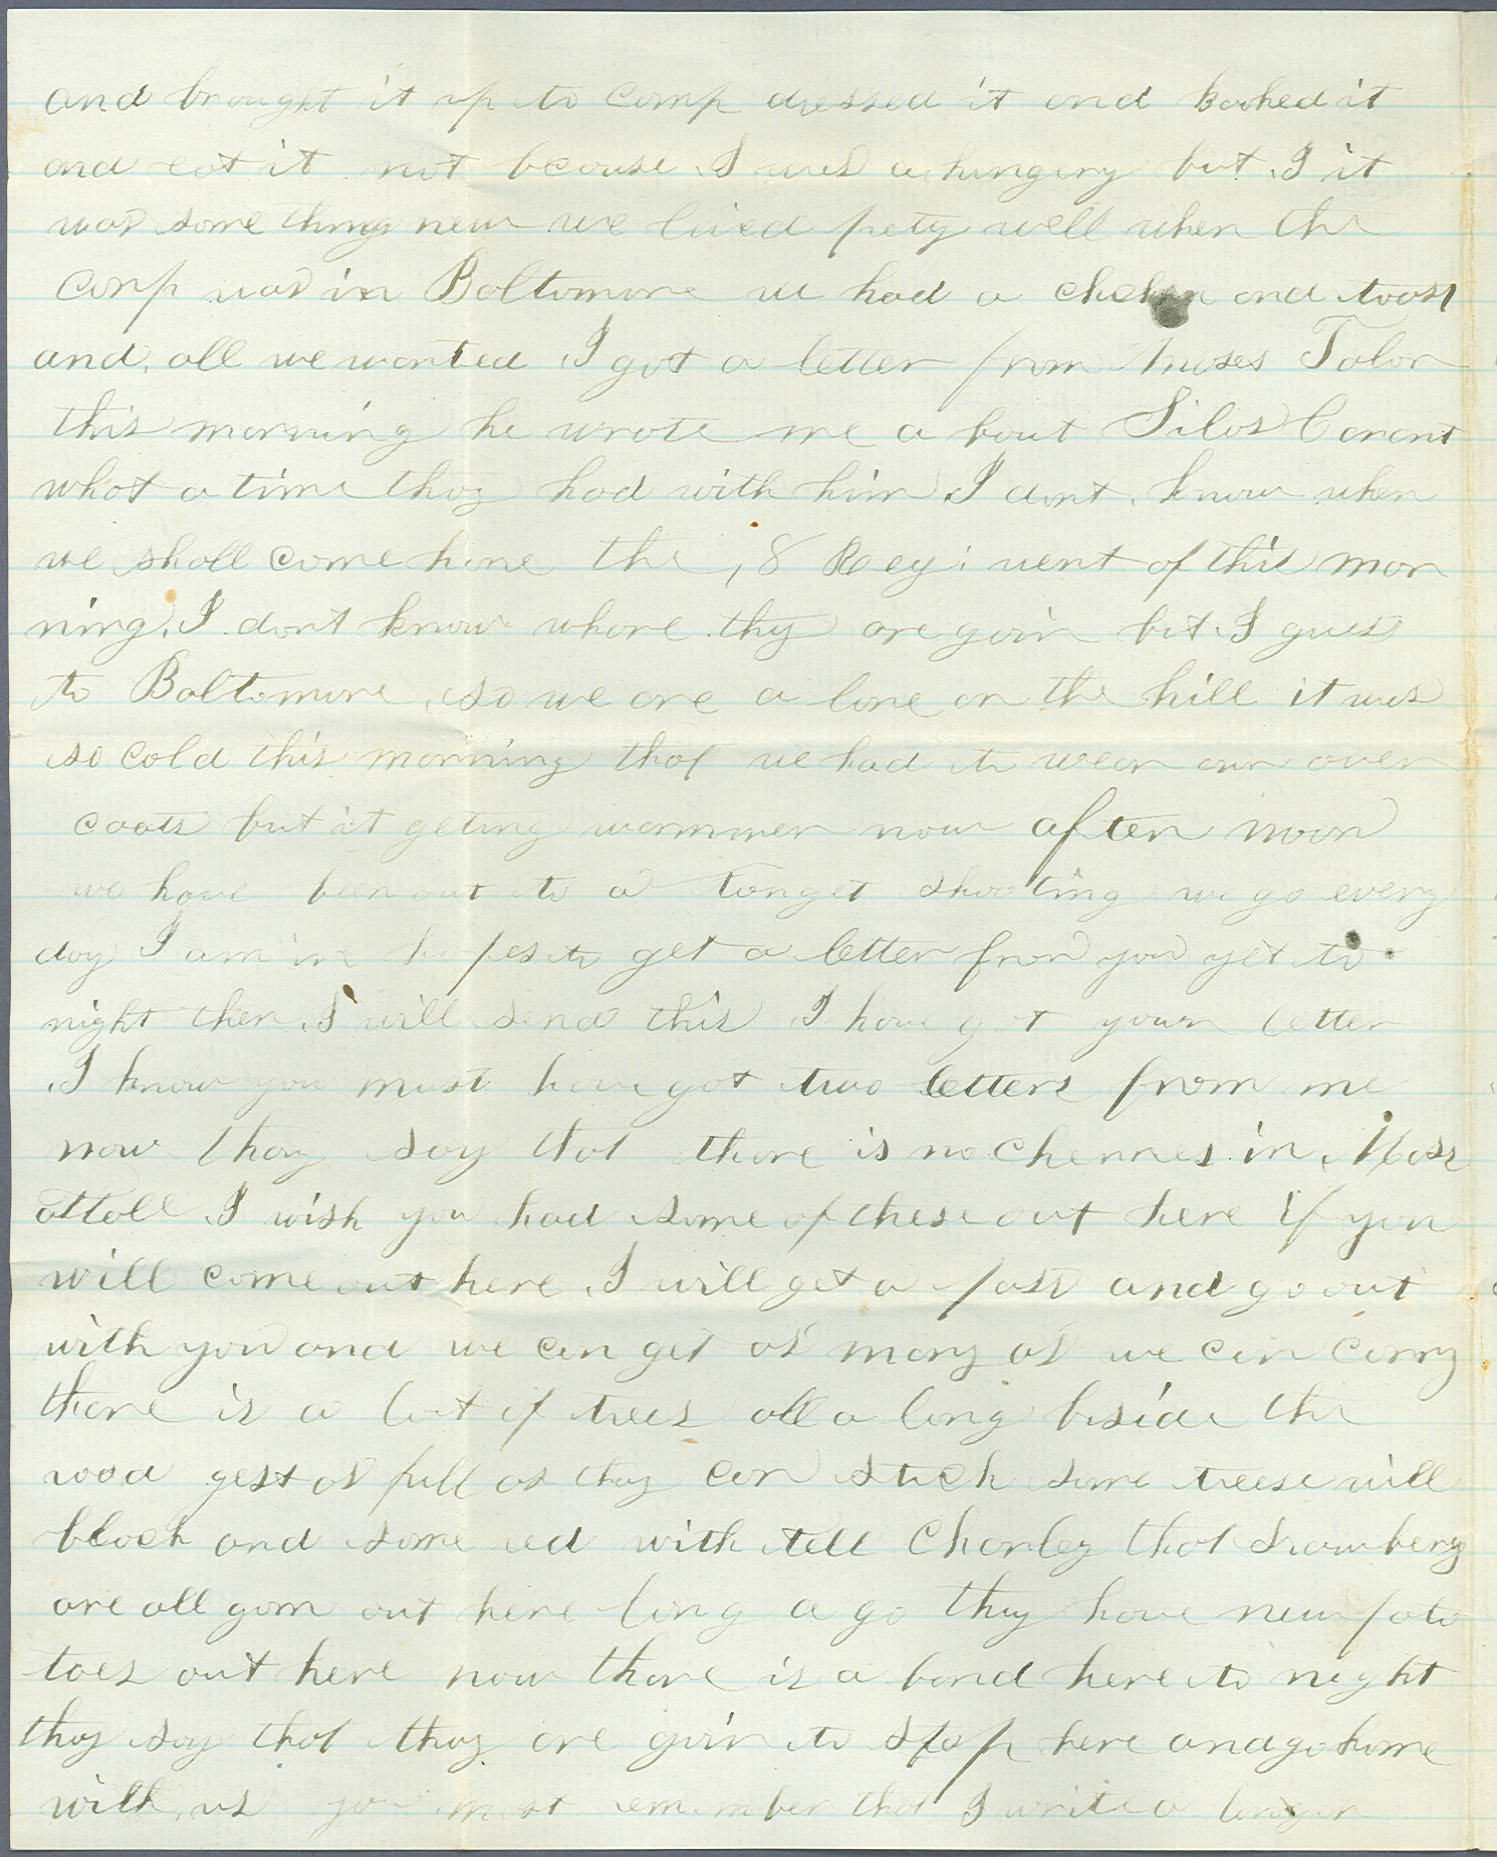 and brought it up to camp dressed it and koohed it
and eat it not becouse I was a hungery but I it
was some thing new we lived prety well when the
Comp was in Baltomore we had a and toast
and all we wanted I got a letter from Moses Talor
this morning he wrote me a bout Silas
what a time thay had with him I dont know when
we shall come home the 8 Regiment of this mor
ning. I dont know whare thy are goin but I gues
to Baltomore so we are a lone on the hill it was
so cold this morning that we had to wear our over
coats but it geting warmmer now after noon
we have been out to a target shooting we go every
day I am in hopes to get a letter from you yet to
night then I will send this I have got your letter
I know you must have got two letters from me
now thay say that thare is no cherries in Mass
attall I wish you had some of these out here if you
will come out here I will get a pass and go out
with you and we can get as many as we can carry
thare is a lot of trees all a long beside the
road gest as full as thay can stick some treese will
black and some red with tell Charley that strawbery
are all gorn out here long a go they have new pota
toes out here now thare is a band here to night
thay say that thay are goin to stop here and go home
with us you must remember that I write a longer